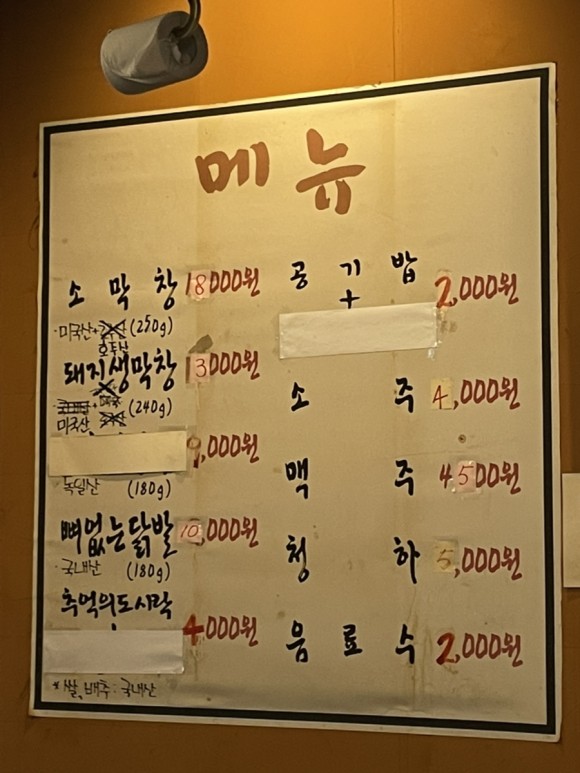 메뉴
소 막 창 18000원
·미국산+ (250g)
호주산
돼지생막창 13000원
(240g)
미국산
9,000원
독일산 (180g)
뼈없는닭발 10,000원
·국내산 (180g)
추억의도시락
4000원
*쌀, 배추 : 국내산
공 기 밥
+
2,000원
소 주 4,000원
맥 주 4500원
청 하 5,000원
음 료 수 2,000원